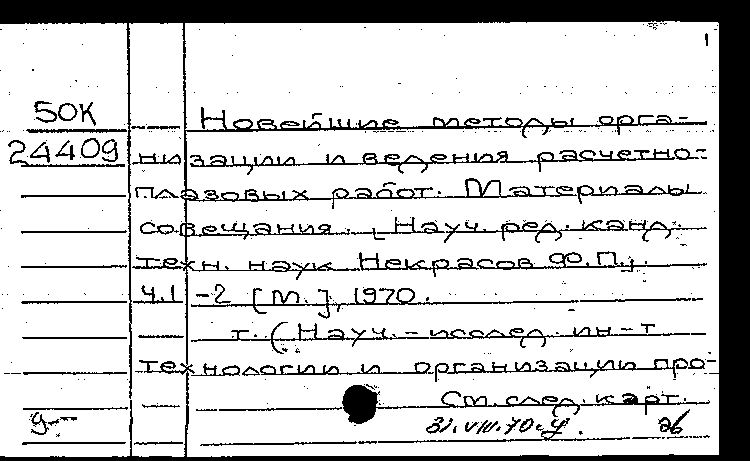 1
50К
24409
Новейшие методы орга-
низации и ведения расчетно-
плазовых работ. Материалы
совещания. [Науч. ред. канд.
техн. наук Некрасов Ф.П.].
Ч.1-2 [М.], 1970.
т. (Науч.-исслед. ин-т
технологии и организации про-
См. след. карт.
31.VIII.70.